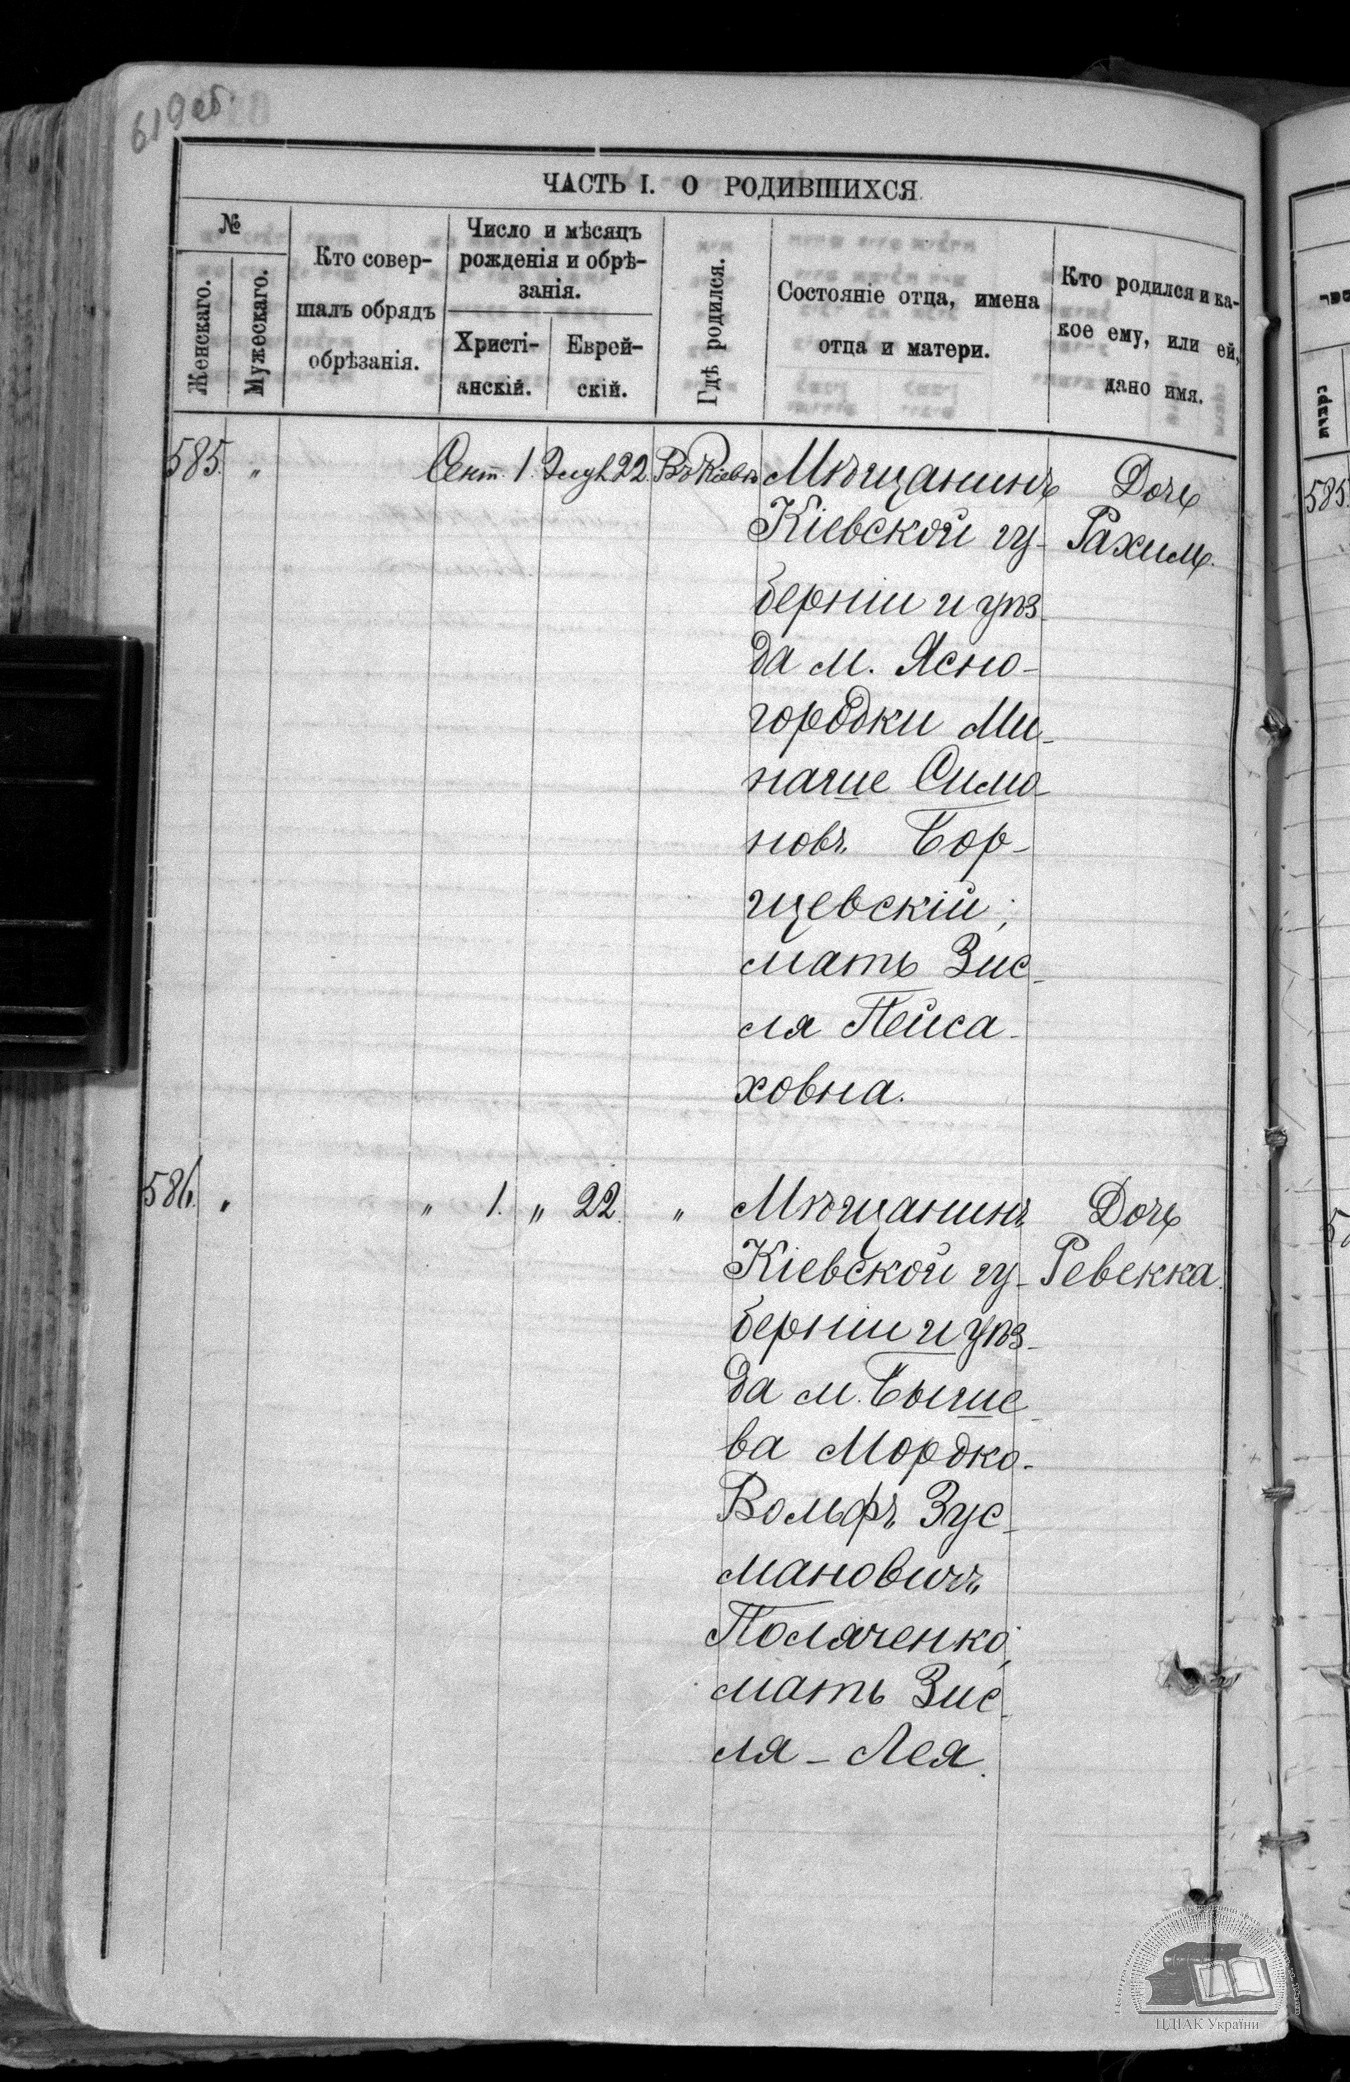 619 об.
ЧАСТЬ I. О РОДИВШИХСЯ.
№
Женскаго.
Мужескаго.
Кто совер-
шалъ обрядъ
обрѣзанія.
Число и мѣсяцъ
рожденія и обрѣ-
занія.
Христі-
анскій.
Еврей-
скій.
Гдѣ родился.
Состояніе отца, имена
отца и матери.
Кто родился и ка-
кое ему, или ей,
дано имя.
585. „ Сент. 1. Элул 22. Въ Кіевѣ Мѣщанинъ Дочь
Кіевской гу- Рахиль.
берніи и уѣз-
да м. Ясно-
городки Ми-
наше Симо-
новъ Бор-
щевскій;
мать Зис-
ля Пейса-
ховна.
586. „ „ 1. „ 22. „ Мѣщанинъ Дочь
Кіевской гу- Ревекка.
берніи и уѣз-
да м. Быше-
ва Мордко-
Вольфъ Зус-
мановичъ
Поляченко,
мать Зис-
ля - Лея.
585
ЦДІАК України